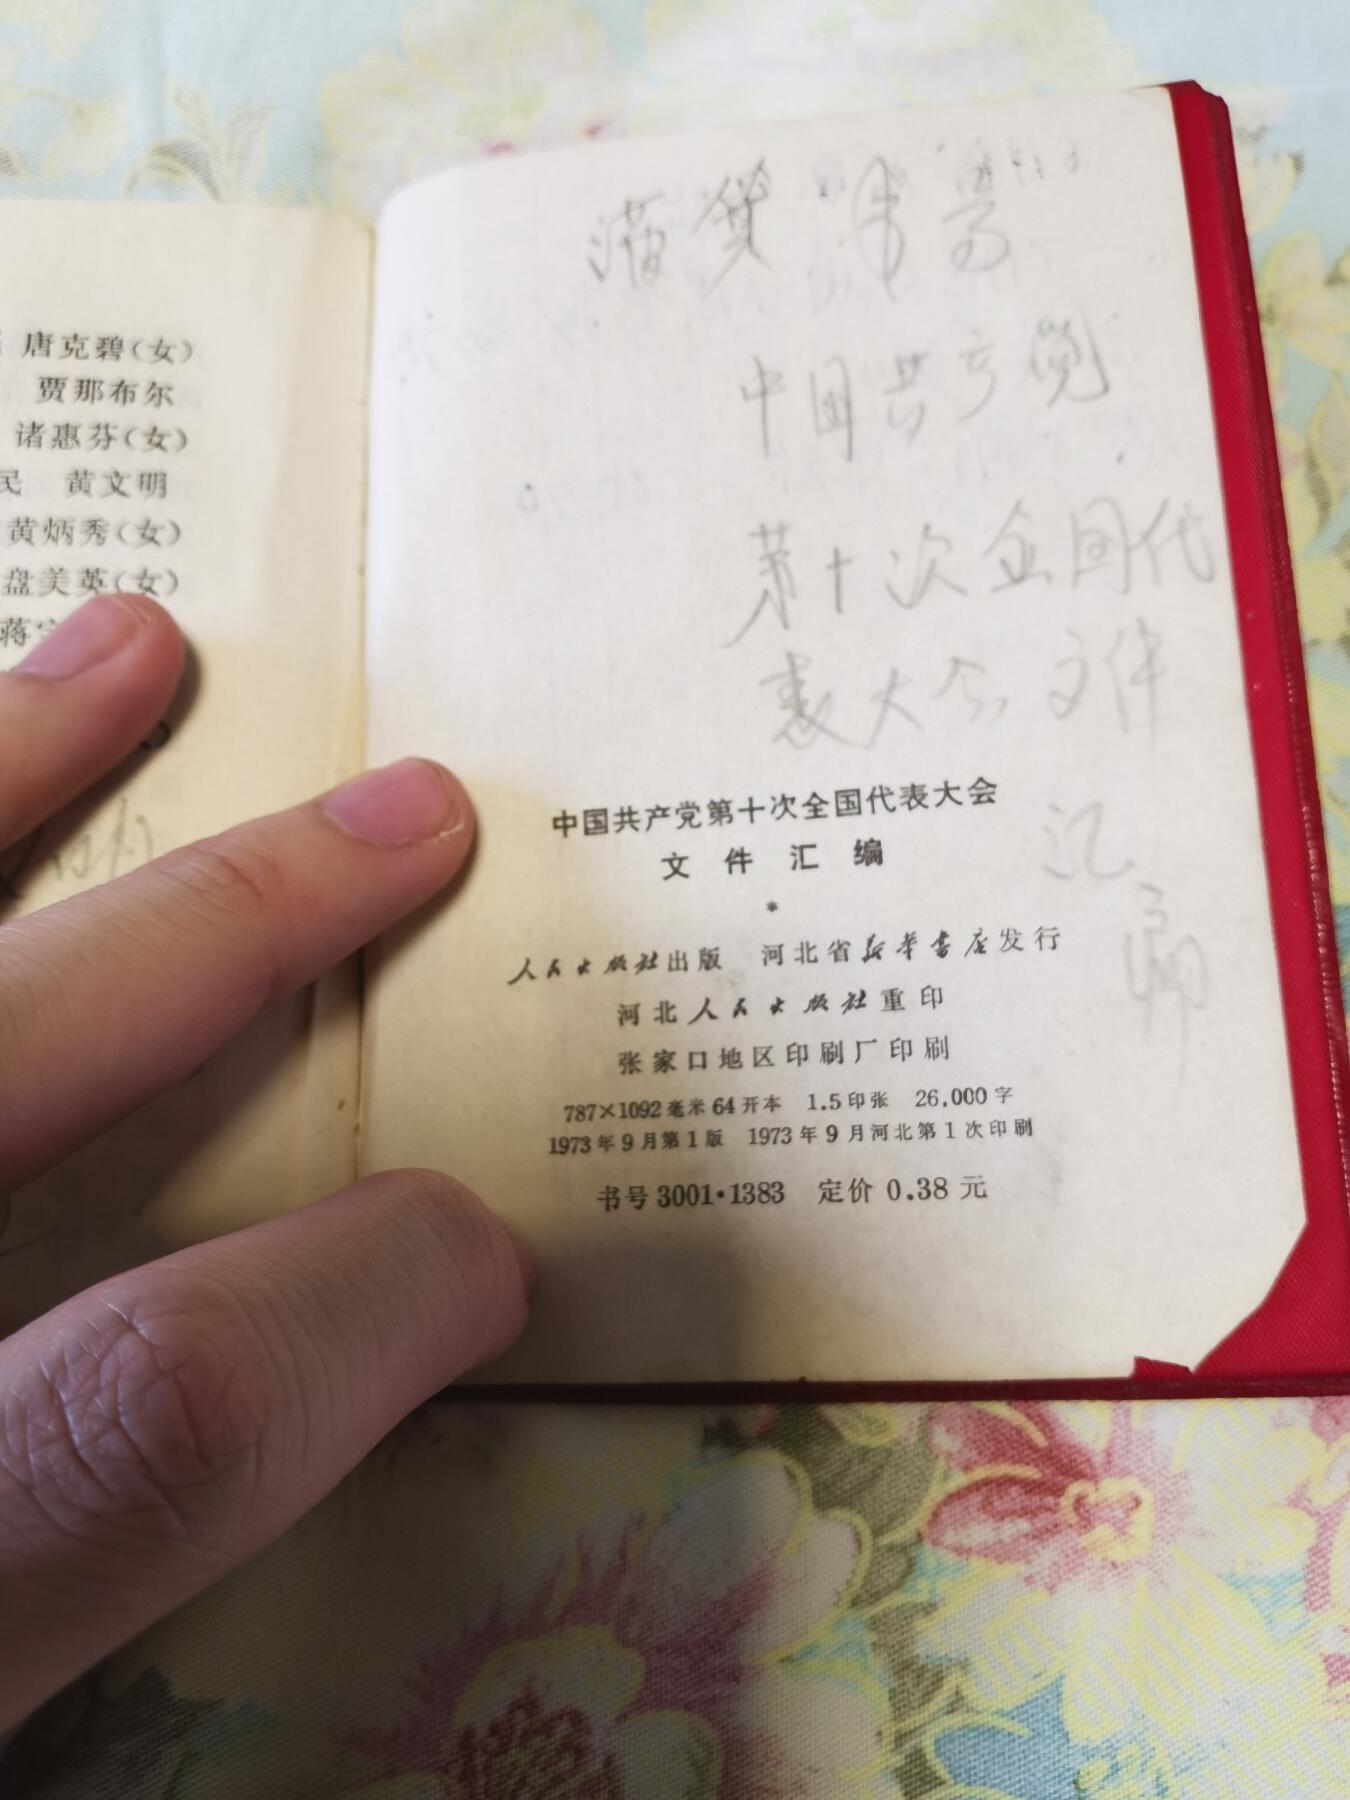 唐克碧(女)
贾那布尔
诸惠芬(女)
民 黄文明
黄炳秀(女)
盘美英(女)
蒋
中国共产党
第十次全国代
表大会文件
汇编
中国共产党第十次全国代表大会
文件汇编
*
人民出版社出版 河北省新华书店发行
河北人民出版社重印
张家口地区印刷厂印刷
787×1092毫米64开本 1.5印张 26,000字
1973年9月第1版 1973年9月河北第1次印刷
书号3001·1383 定价0.38元